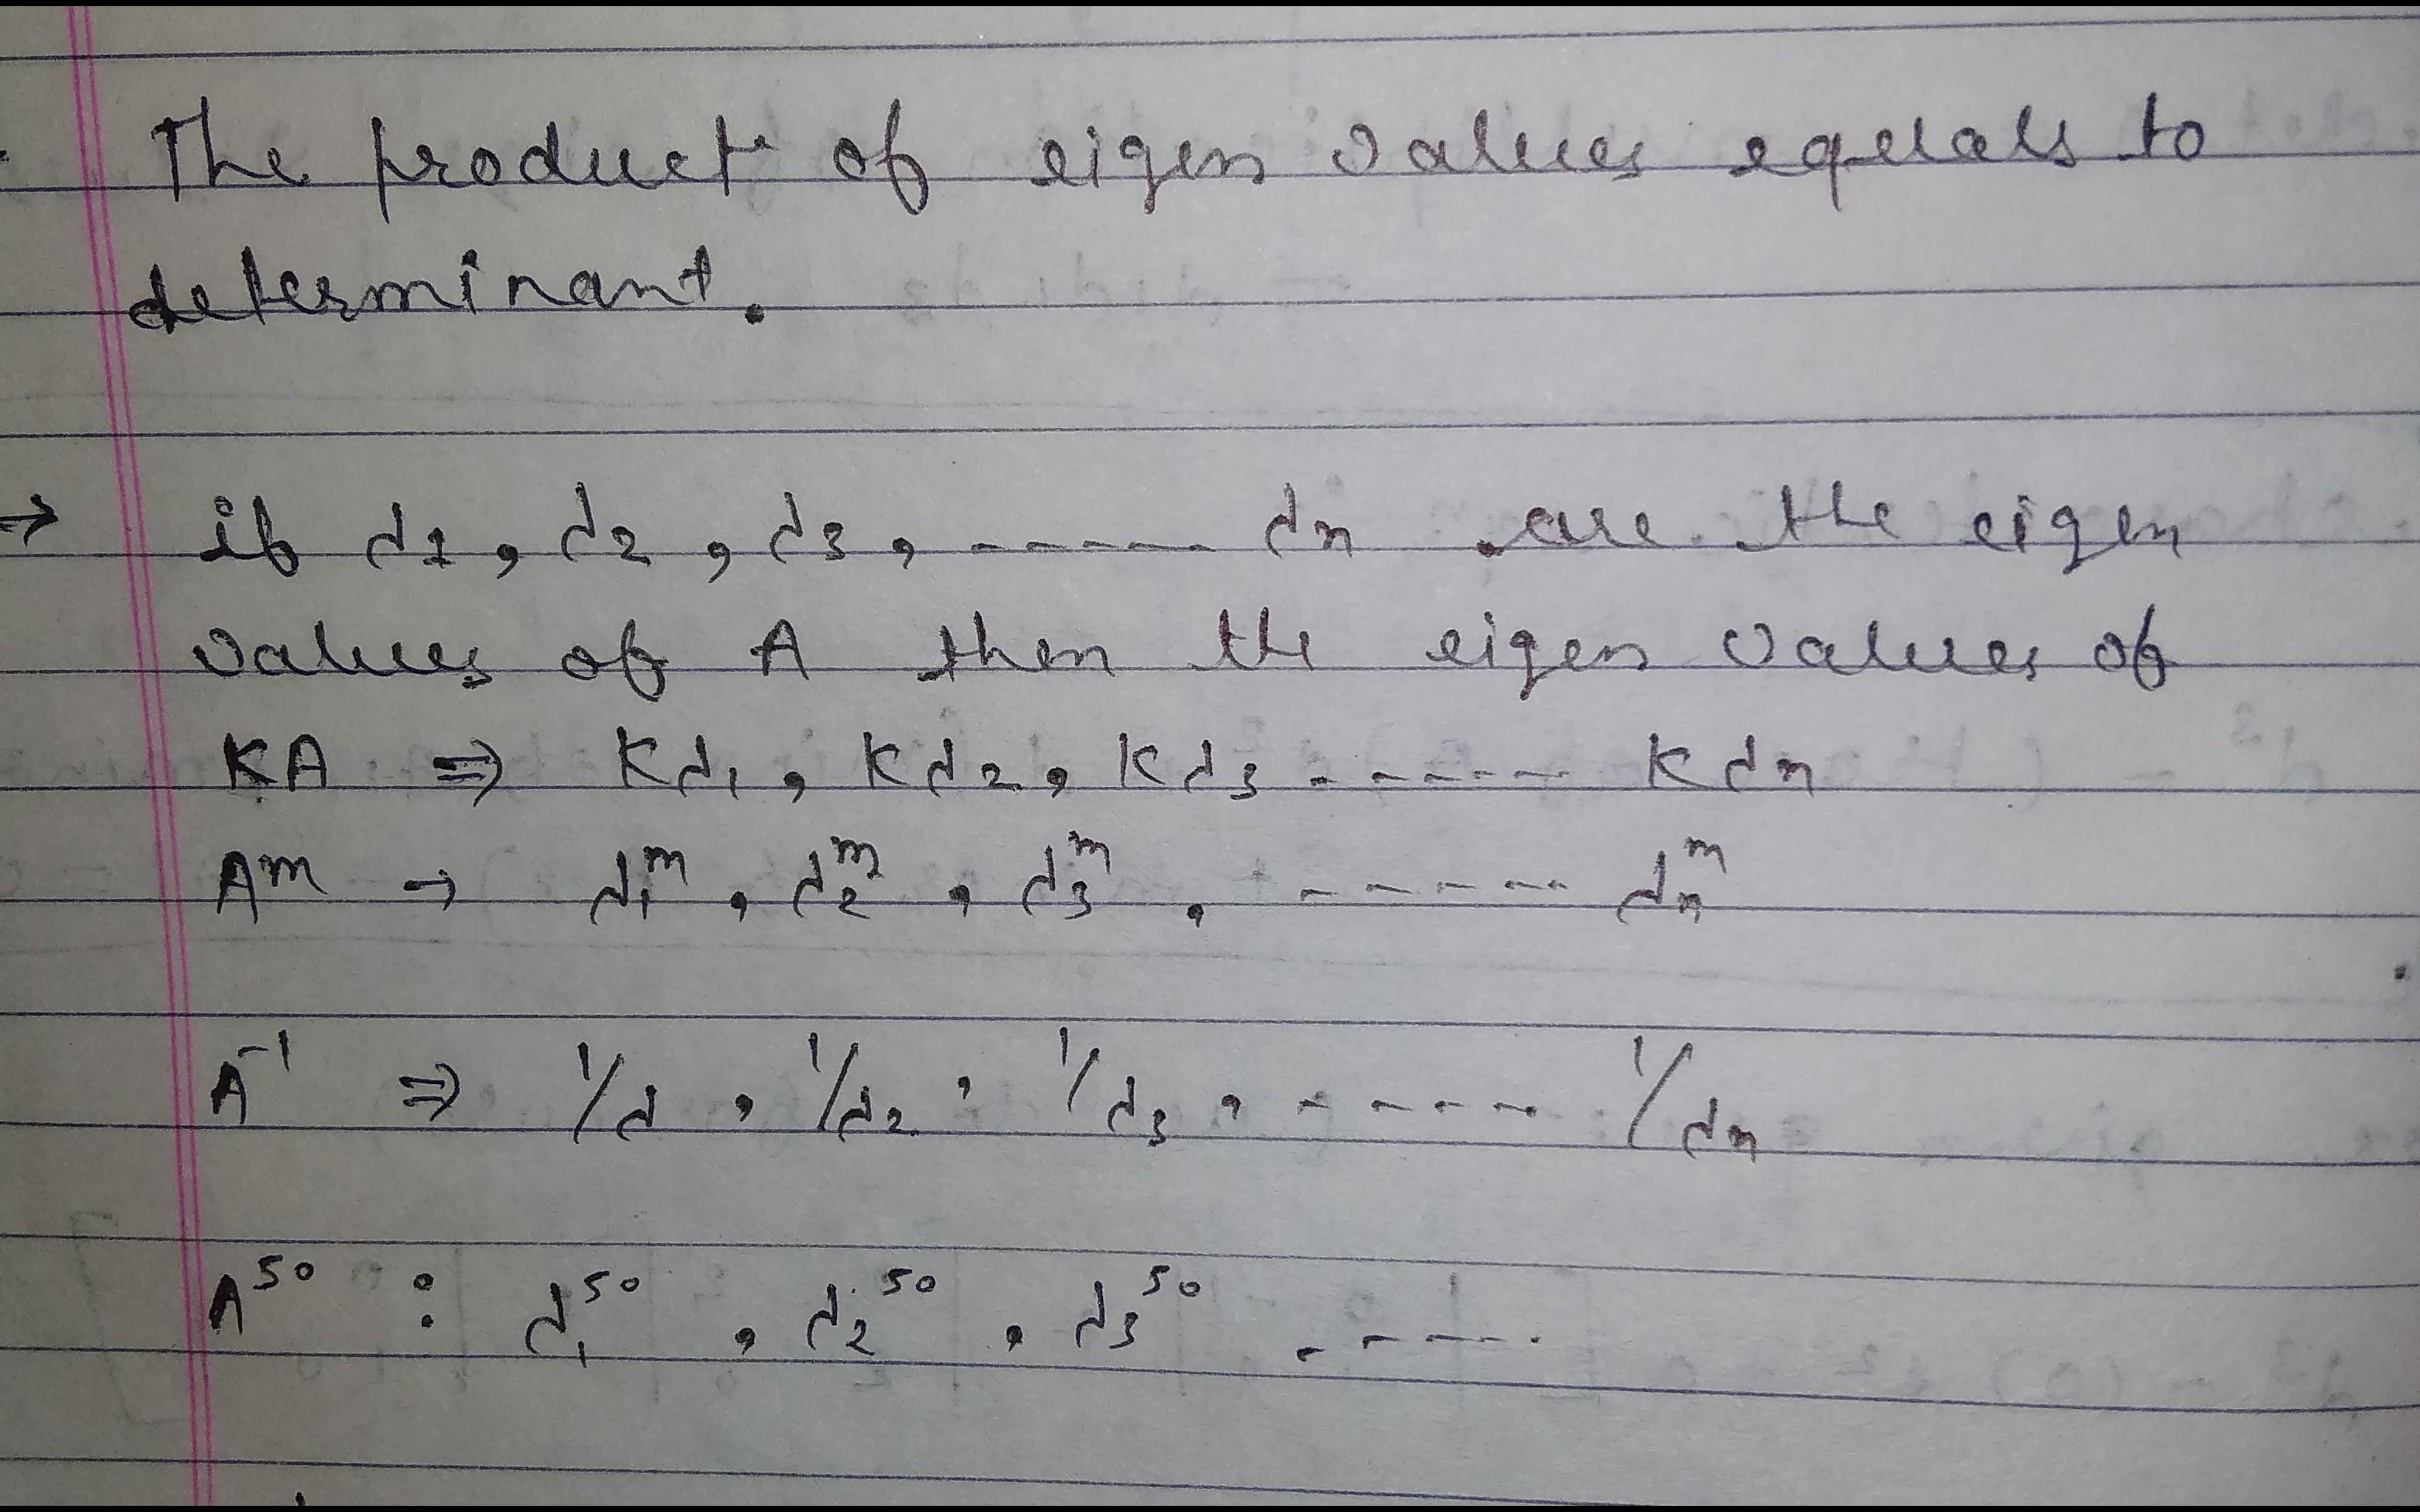 The product of eigen values equals to
determinant.
→ if λ1, λ2, λ3, ----- λn are the eigen
values of A then the eigen values of
KA ⇒ Kλ₁, Kλ₂, Kλ₃ ------ Kλn
Aᵐ → λ₁ᵐ, λ₂ᵐ, λ₃ᵐ, ------ λnᵐ
A⁻¹ ⇒ 1/λ, 1/λ₂, 1/λ₃, ----- 1/λn
A⁵⁰ : λ₁⁵⁰, λ₂⁵⁰, λ₃⁵⁰ -----